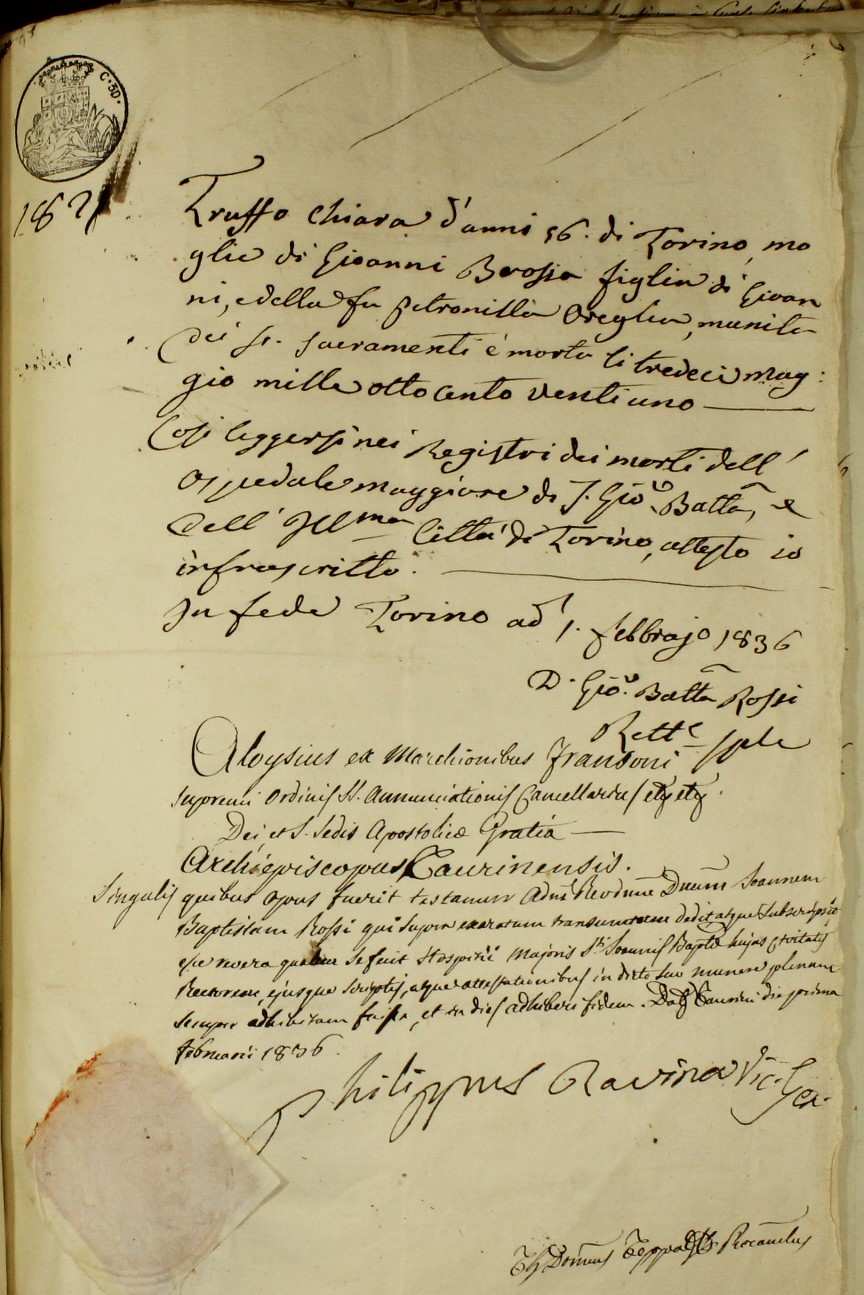 C. 50.
1821
Truffo Chiara d'anni 56. di Torino, mo
glie di Gioanni Brosia figlia di Gioan
ni, e della fu Petronilla Oreglia, munita
dei SS. Sacramenti è morta li tredeci mag:
gio mille otto cento venti uno
Così leggersi nei Registri dei morti dell'
Ospedale maggiore di S. Gio. Batta, e
dell' Illma Città di Torino, attesto io
infrascritto.
In fede Torino ad 1. febbrajo 1836
D. Gio. Batta Rossi
Rett.e
Aloysius ex Marchionibus Fransoni
supremi ordinis SS. Annunciationis Cancellarius etc etc.
Dei et S. Sedis Apostolicæ Gratia
Archiepiscopus Taurinensis.
Singulis quibus opus fuerit testamur Adm. Revdum Dnum Joannem
Baptistam Rossi qui supra exaratum transumptum dedit atque subscripsit
esse revera qualem se facit Hospitii Majoris Sti Joannis Bapte hujus Civitatis
Rectorem, ejusque scriptis, atque attestationibus in dicto suo munere plenam
semper adhibitam fuisse, et in dies adhiberi fidem. Datt Taurini die prima
februarii 1836.
Philippus Ravina Vic. Gen.
Th. Domus